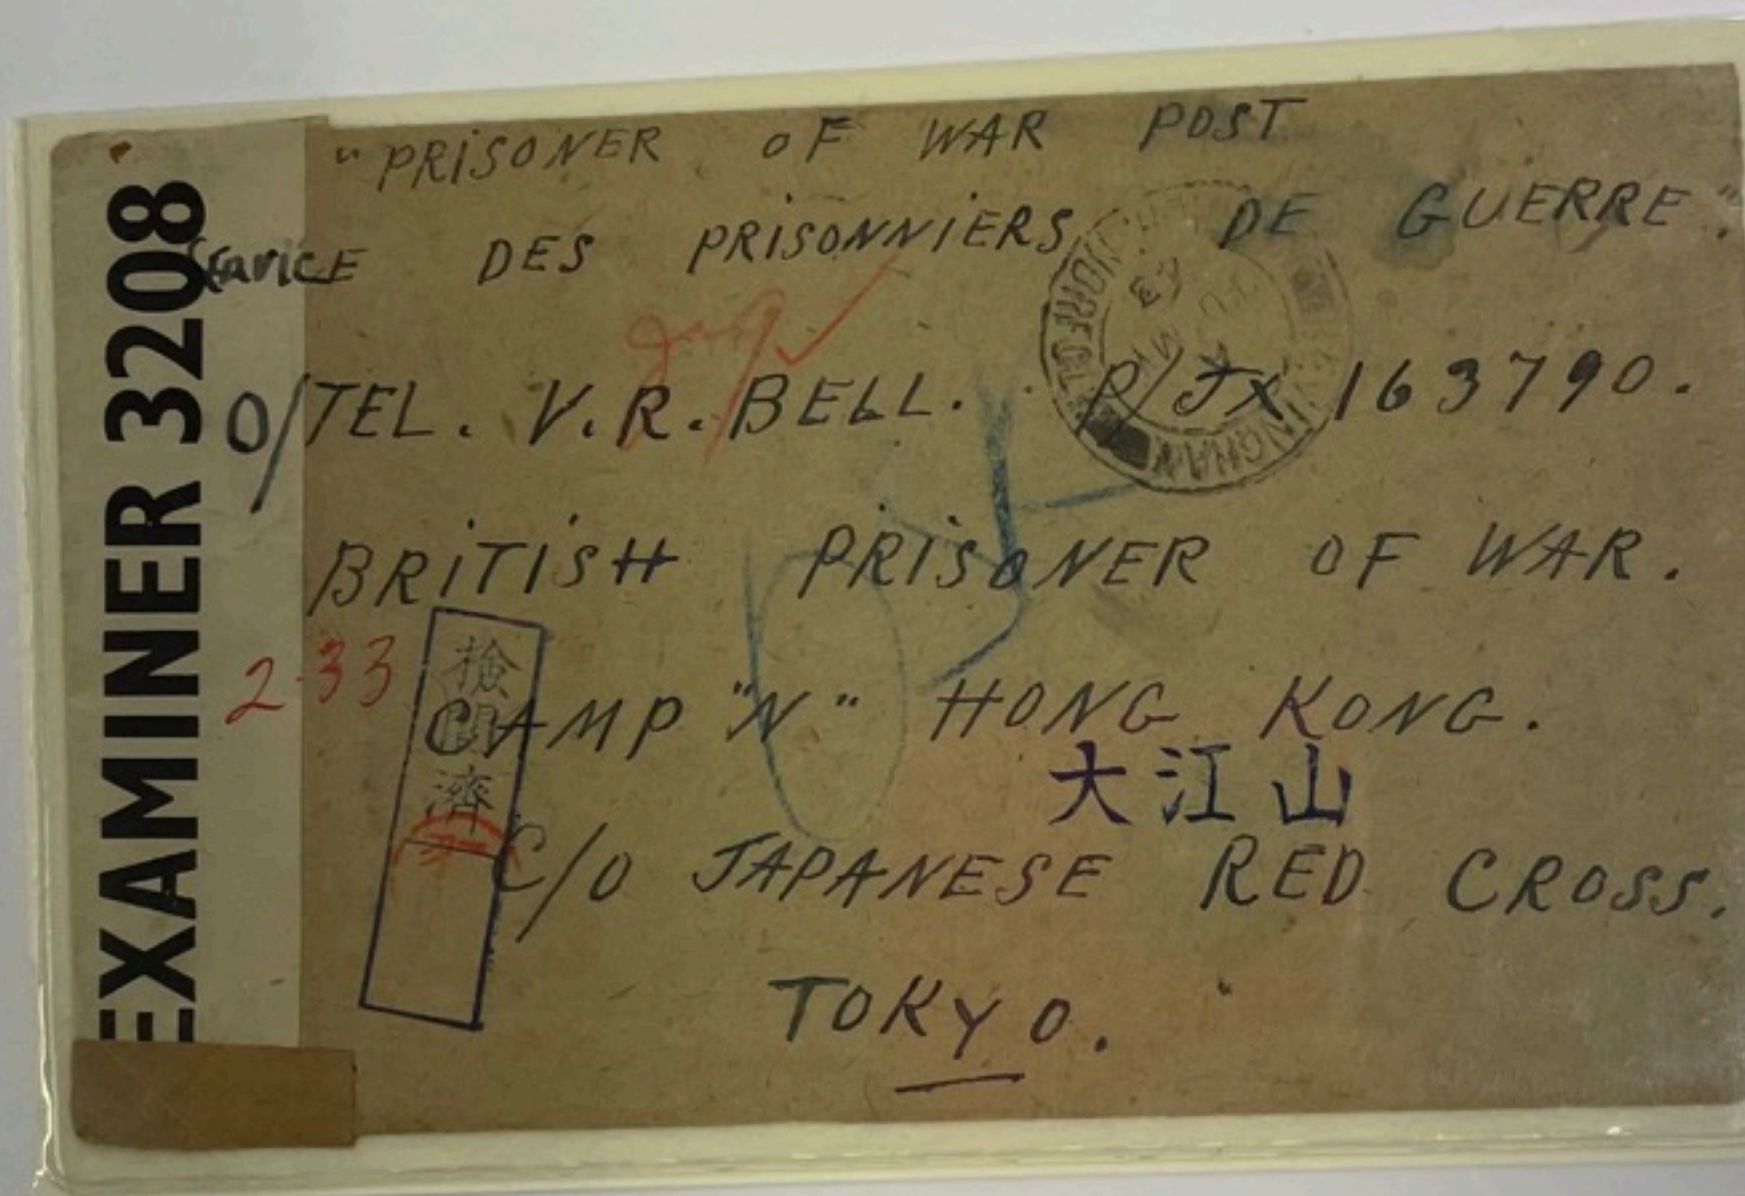 EXAMINER 3208
"PRISONER OF WAR POST
SERVICE DES PRISONNIERS DE GUERRE".
O/TEL. V.R. BELL. P/JX 163790.
BRITISH PRISONER OF WAR.
2-33
検閲済
CAMP "N" HONG KONG.
大江山
C/O JAPANESE RED CROSS.
TOKYO.